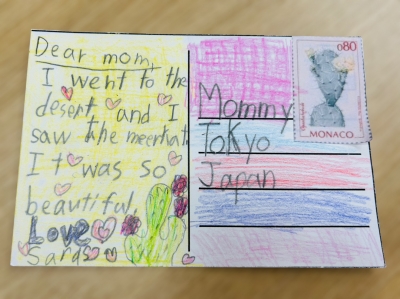 Dear mom,
I went to the
desert and I
saw the meerkat
It was so
beautiful.
Love
Saras
Mommy
Tokyo
Japan
0.80
MONACO